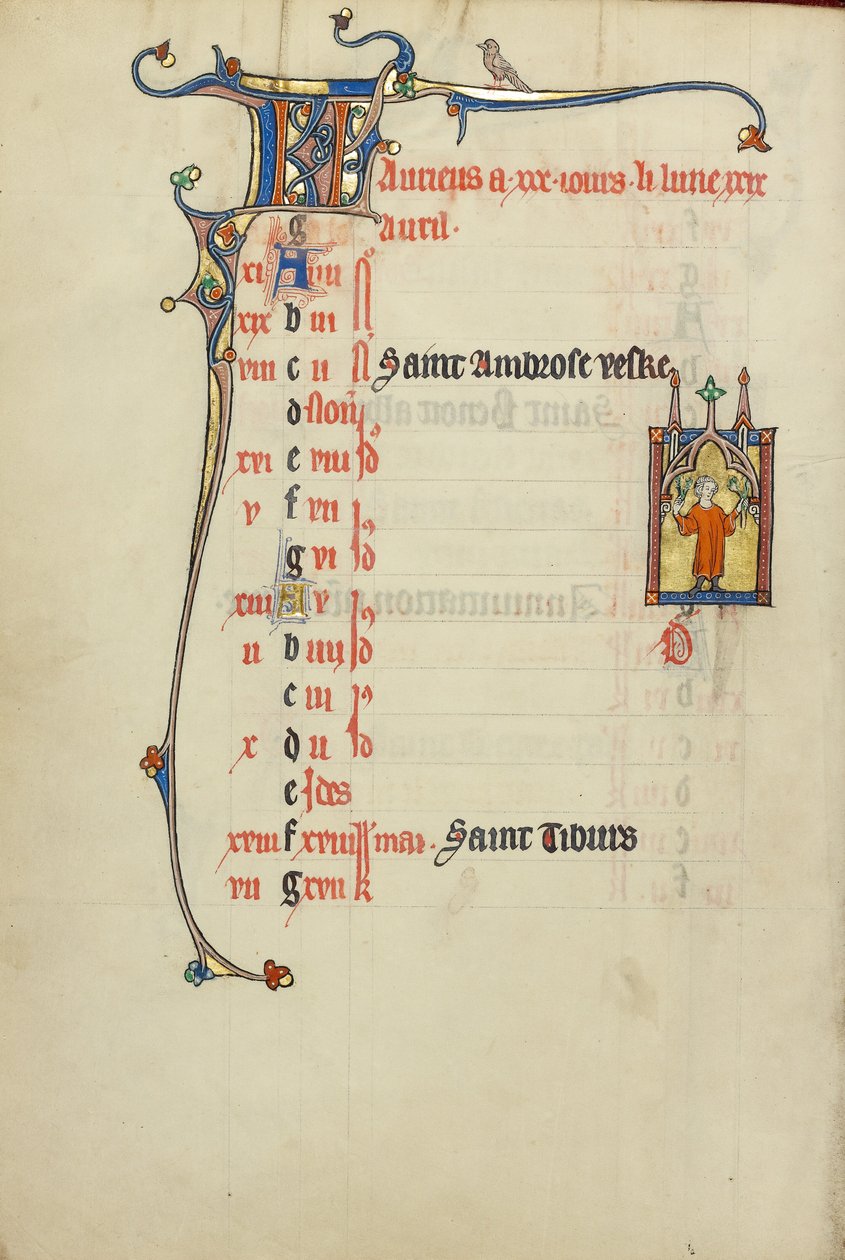 KL Aurieus a·xxx·iours·li lune xxix
g Auril·
xi A iiii N
xix b iii N
viii c ii N Saint Ambrose veske.
d Non
xvi e viii id
v f vii id
g vi id
xiii A v id
ii b iiii id D
c iii id
x d ii id
e ides
xviii f xviii kl mai. Saint Tiburs
vii g xvii k